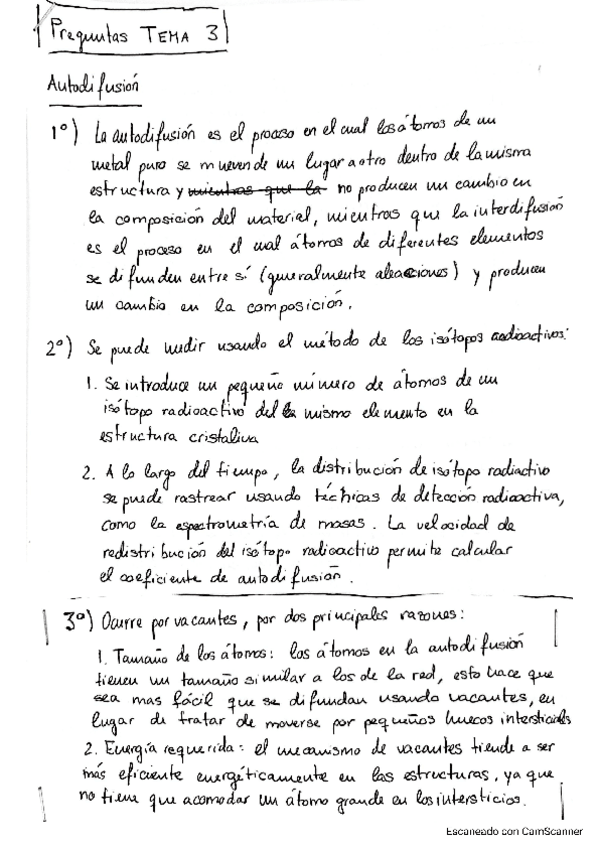 Preguntas TEMA 3
Autodifusión
1º) La autodifusión es el proceso en el cual los átomos de un
metal puro se mueven de un lugar a otro dentro de la misma
estructura y mientras que la no producen un cambio en
la composición del material, mientras que la interdifusión
es el proceso en el cual átomos de diferentes elementos
se difunden entre sí (generalmente aleaciones) y producen
un cambio en la composición.
2º) Se puede medir usando el método de los isótopos radioactivos:
1. Se introduce un pequeño número de átomos de un
isótopo radioactivo del mismo elemento en la
estructura cristalina
2. A lo largo del tiempo, la distribución de isótopo radiactivo
se puede rastrear usando técnicas de detección radioactiva,
como la espectrometría de masas. La velocidad de
redistribución del isótopo radioactivo permite calcular
el coeficiente de autodifusión.
3º) Ocurre por vacantes, por dos principales razones:
1. Tamaño de los átomos: los átomos en la autodifusión
tienen un tamaño similar a los de la red, esto hace que
sea mas fácil que se difundan usando vacantes, en
lugar de tratar de moverse por pequeños huecos intersticiales
2. Energía requerida: el mecanismo de vacantes tiende a ser
más eficiente energéticamente en las estructuras, ya que
no tiene que acomodar un átomo grande en los intersticios.
Escaneado con CamScanner